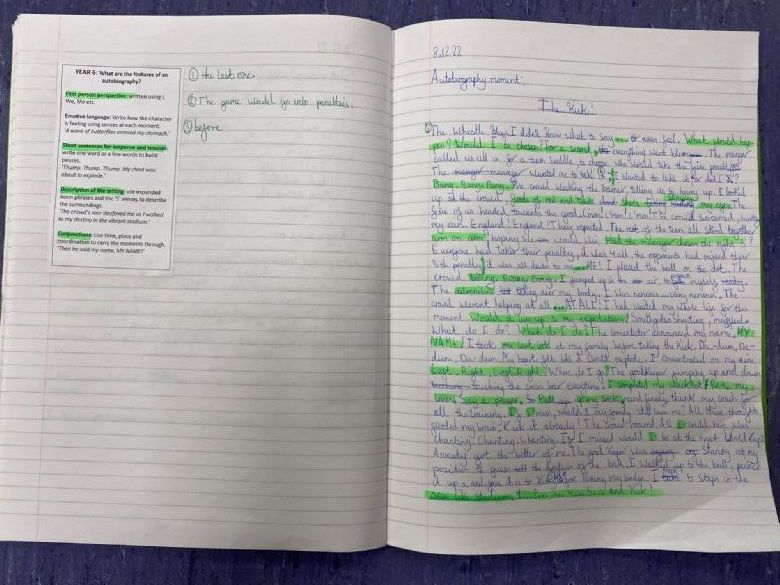 YEAR 6: What are the features of an
autobiography?
First person perspective: written using I,
We, Me etc.
Emotive language: Write how the character
is feeling using senses at each moment.
'A wave of butterflies entered my stomach.'
Short sentences for suspense and tension:
write one word or a few words to build
pauses.
'Thump. Thump. Thump. My chest was
about to explode.'
Description of the setting: use expanded
noun phrases and the '5' senses to describe
the surroundings.
'The crowd's roar deafened me as I walked
to my destiny in the vibrant stadium.'
Conjunctions: Use time, place and
coordination to carry the moments through.
'Then he said my name. MY NAME!'
① the last one.
② The game would go into penalties.
③ before
8.12.22
Autobiography moment:
The Kick!
The whistle blew. I didn't know what to say or even feel. What would hap-
pen? Would I be chosen? For a second, everything went. The manger
called us all in for a team huddle, to choose who would take the penalties.
The manager wanted me to talk. I wanted to take it but did I?
Bang. Bang. Bang. The crowd whacking the banner telling us to hurry up. I looked
up at the crowd. of red and my eyes. The
five of us headed towards the goal. C'mon! C'mon! C'mon! The crowd screamed, hurting
my ears. England! England! They repeated. The rest of the team all stood together
arm on arm hoping we would win. Had the manager chosen the right?
Everyone had taken their penalty, it was 4 all, the opponents had missed their
5th penalty, it was all down to me. ME! I placed the ball on the dot. The
crowd Bang. Bang. Bang. I jumped up in the air, to myself ready.
The adrenaline taking over my body. I was nervous. Very nervous. The
crowd weren't helping at all. AT ALL! I had waited my whole life for this
moment. Would I live up to my expectations? Southgates shouting, muffled.
What do I do? What do I do? The comentator announced my name. MY
NAME! I took one last look at my family before taking the kick. Du-dum, Du-
dum, Du-dum. My heart felt like it would explode. I concentrated on my aim.
Left. Right. Left. Right. Where do I go? The goalkeeper jumping up and down
touching the cross bar everytime. I completed my checklist: 
 Say a prayer. Pull up my socks, and finally thank my coach for
all the training. If I miss, would my family still love me? All these thoughts
flooded my brain. Kick it already! The crowd roared. All I could hear was
Chanting. Chanting. Chanting. If I missed would I be at the next World Cup?
Anxiety got the better of me. The goal keeper was staring at my
position to guess the of the ball. I walked up to the ball, picked
it up and gave it a kiss before my. I took 5 steps in the